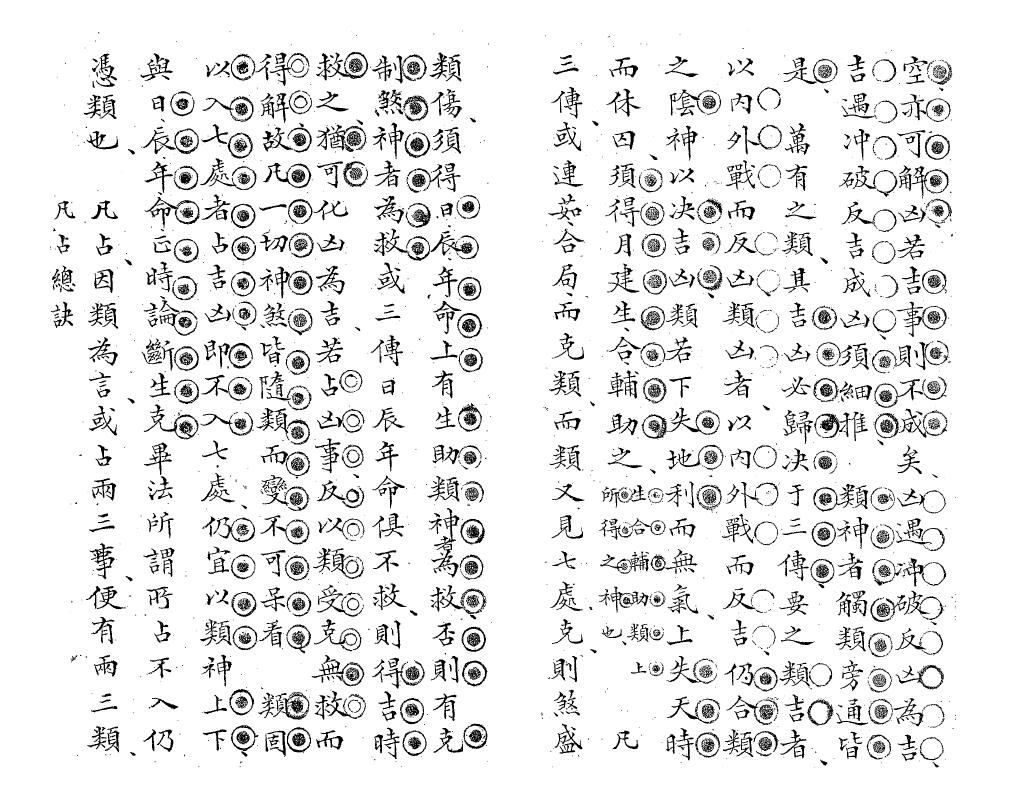 空亦可解凶若吉事則不成矣凶遇冲破反凶為吉
吉遇冲破反吉成凶須細推　類神者觸類旁通皆
是　萬有之類其吉凶必歸决于三傳要之類吉者
以内外戰而反凶類凶者、以内外戰而反吉仍合類
之陰神以决吉凶類若下失地利而無氣、上失天時
而休囚、須得月建生合輔助之、
生合輔助類上
所得之神也
凡
三傳、或連茹合局、而克類、而類又見七處克則煞盛、
類傷、須得日辰年命上有生助類神為救否則有克
制煞神者為救或三傳日辰年命俱不救、則得吉時、
救之猶可化凶為吉、若占凶事反以類受克無救而
得解、故凡一切神煞、皆隨類而變不可呆看　類固
以入七處者占吉凶即不入七處仍宜以類神上下
與日辰年命正時論斷生克畢法所謂所占不入仍
憑類也、　凡占、因類為言、或占兩三事、便有兩三類、
凡占總訣